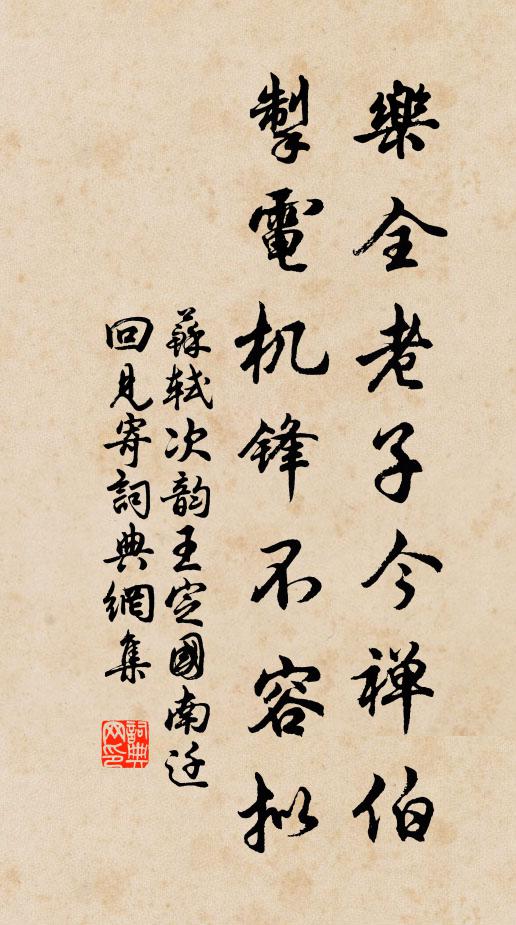 樂全老子今禅伯
掣電机锋不容拟
蘇軾次韵王定國南迁
回見寄詞典網集
詞典
网印